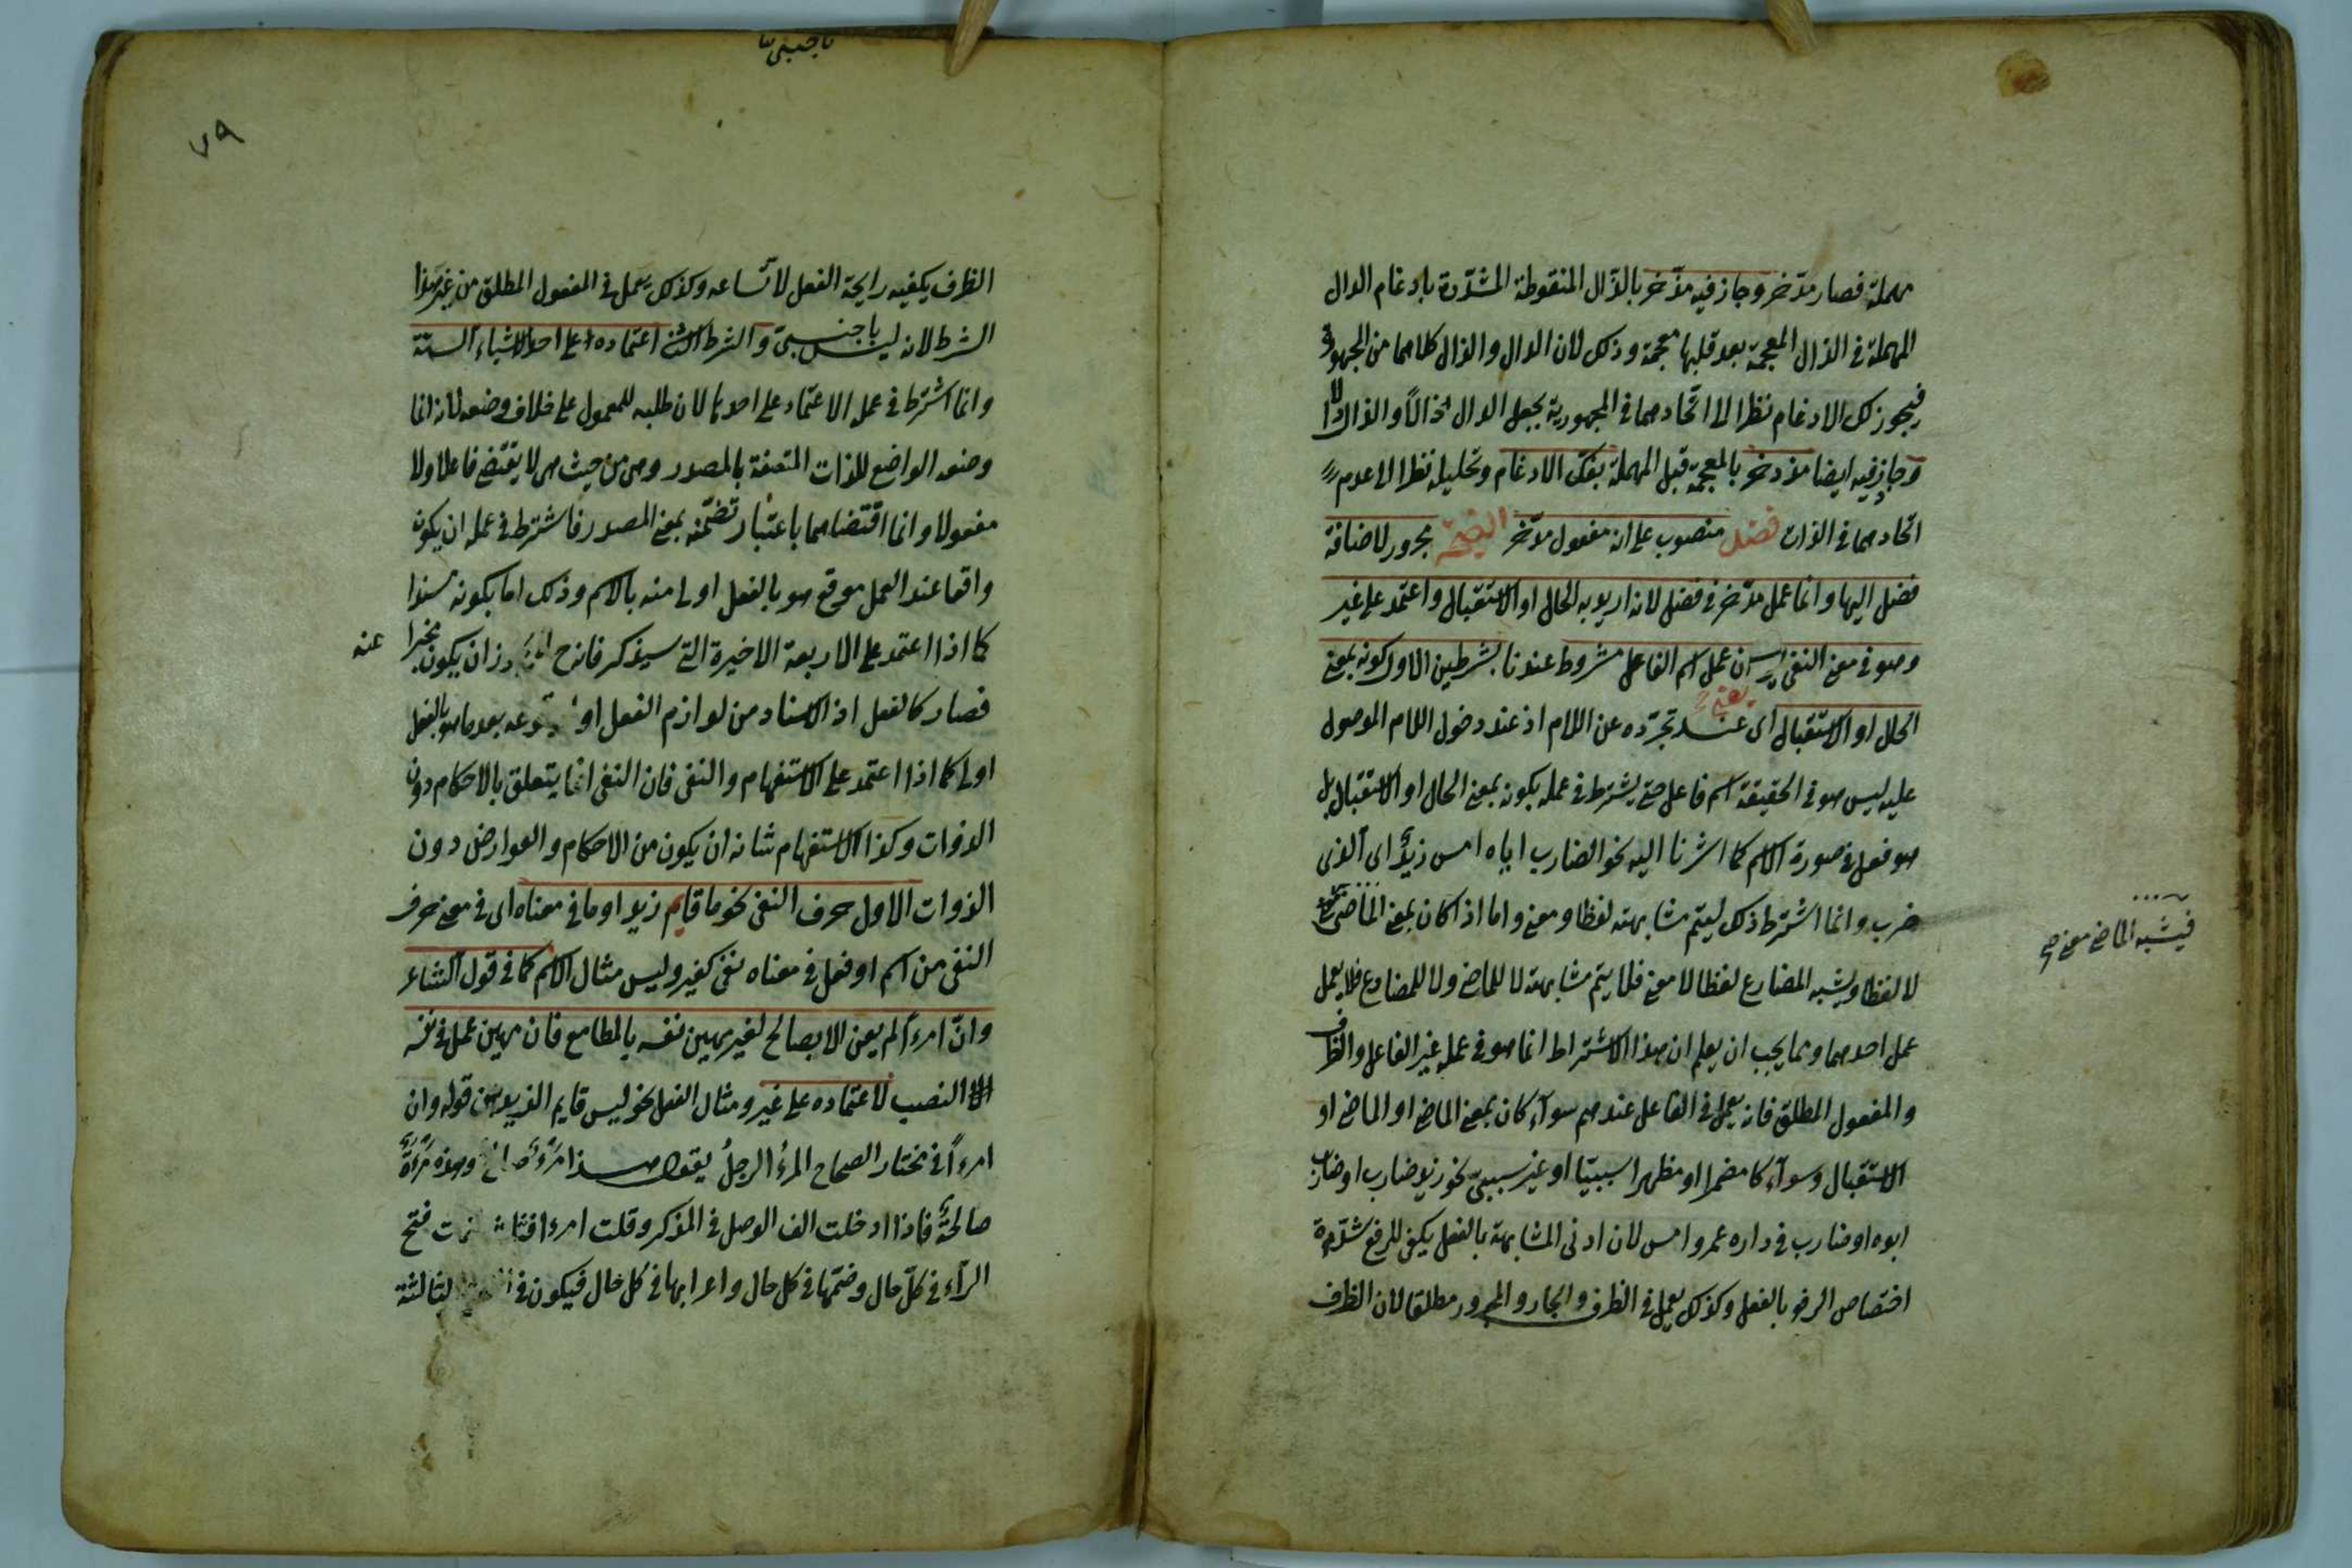 مهملة فصار مدّخر وجاز فيه مذّخر بالذّال المنقوطة المشدّدة بادغام الدال
المهملة فى الذال المعجمة بعد قلبها معجمة وذلك لان الدال والذال كلاهما من المجهورة
فيجوز لك الادغام نظرا الى اتحادهما فى المجهورية بجعل الدال ذالاً والذال دالا
وجاز فيه ايضا مذدخر بالمعجمة قبل المهملة بفك الادغام وتحليله نظرا الى عدم
اتحادهما فى الذات فضل منصوب على انه مفعول مدّخر مجرور لاضافة
فضل اليها وانما عمل مدّخر فى فضل لانه اريد به الحال او الاستقبال واعتمد على غير
وهو فى معنى النفى عمل اسم الفاعل مشروط عندنا بشرطين الاول كونه بمعنى
الحال او الاستقبال اى عند تجرّده عن اللام اذ عند دخول اللام الموصول
يعنى
عليه ليس هو فى الحقيقة اسم فاعل حتى يشترط فى عمله بكونه بمعنى الحال او الاستقبال بل
هو فعل فى صورة الاسم كما اشرنا اليه نحو الضارب اباه امس زيدٌ اى الذى
ضرب وانما اشترط ذلك ليتم مشابهته لفظا ومعنى واما اذا كان بمعنى الماضى
فيشبه الماضى معنى صح
لا لفظا ويشبه المضارع لفظا لا معنى فلا يتم مشابهته لا للماضى ولا للمضارع فلا يعمل
عمل احدهما ومما يجب ان يعلم ان هذا الاشتراط انما هو فى عمله غير الفاعل والظرف
والمفعول المطلق فانه يعمل فى الفاعل عندهم سوآء كان بمعنى الماضى او الماضى او
الاستقبال وسوآء كا مضمرا او مظهرا سببيّا او غير سببىّ نحو زيد ضارب او ضارب
ابوه او ضارب فى داره عمرو امس لان ادنى المشابهة بالفعل يكفى للرفع شدّة
اختصاص الرفع بالفعل وكذلك يعمل فى الظرف والجار والمجرور مطلقا لان الظرف
٧٩
باجنبىّ
الظرف يكفيه رايحة الفعل لاتّساعه وكذلك يعمل فى المفعول المطلق من غير هذا
الشرط لانه ليس باجنبىّ والشرط الثانى اعتماده على احد الاشياء الستة
وانما اشترط فى عمله الاعتماد على احدها لان طلبه للمعمول على خلاف وضعه لانه انما
وضعه الواضع للذات المتصفة بالمصدر وهى من حيث هى لا يقتضى فاعلا ولا
مفعولا وانما اقتضاهما باعتبار تضمّنه بمعنى المصدر فاشترط فى عمله ان يكون
واقعا عند العمل موقع هو بالفعل اولى منه بالاسم وذلك اما بكونه مسندا
كما اذا اعتمد على الاربعة الاخيرة التى سيذكر فانه ح ان يكون مخبرا
عنه
فصار كالفعل اذ الاسناد من لوازم الفعل او بعد ما هو بالفعل
اولى كما اذا اعتمد على الاستفهام والنفى فان النفى انما يتعلق بالاحكام دون
الذوات وكذا الاستفهام شانه ان يكون من الاحكام والعوارض دون
الذوات الاول حرف النفى نحو ما قايم زيد او ما فى معناه اى فى معنى حرف
النفى من اسم او فعل فى معناه نفى كغير وليس مثال الاسم كما فى قول الشاعر
وانّ امرءاً لم يعن الا بصالح لغير مهين نفسه بالمطامع فان مهين عمل فى نفسه
النصب لاعتماده على غير ومثال الفعل نحو ليس قايم الزيدون قوله وان
امرءاً فى مختار الصحاح المرءُ الرجلُ يقول هذا مَرْءٌ وهذه مَرْءَةٌ
صالحةٌ فاذا ادخلت الف الوصل فى المذكر وقلت امرء فتح
الرآء فى كلّ حال وضمّها فى كل حال واعرابها فى كل حال فيكون فى الثالثة